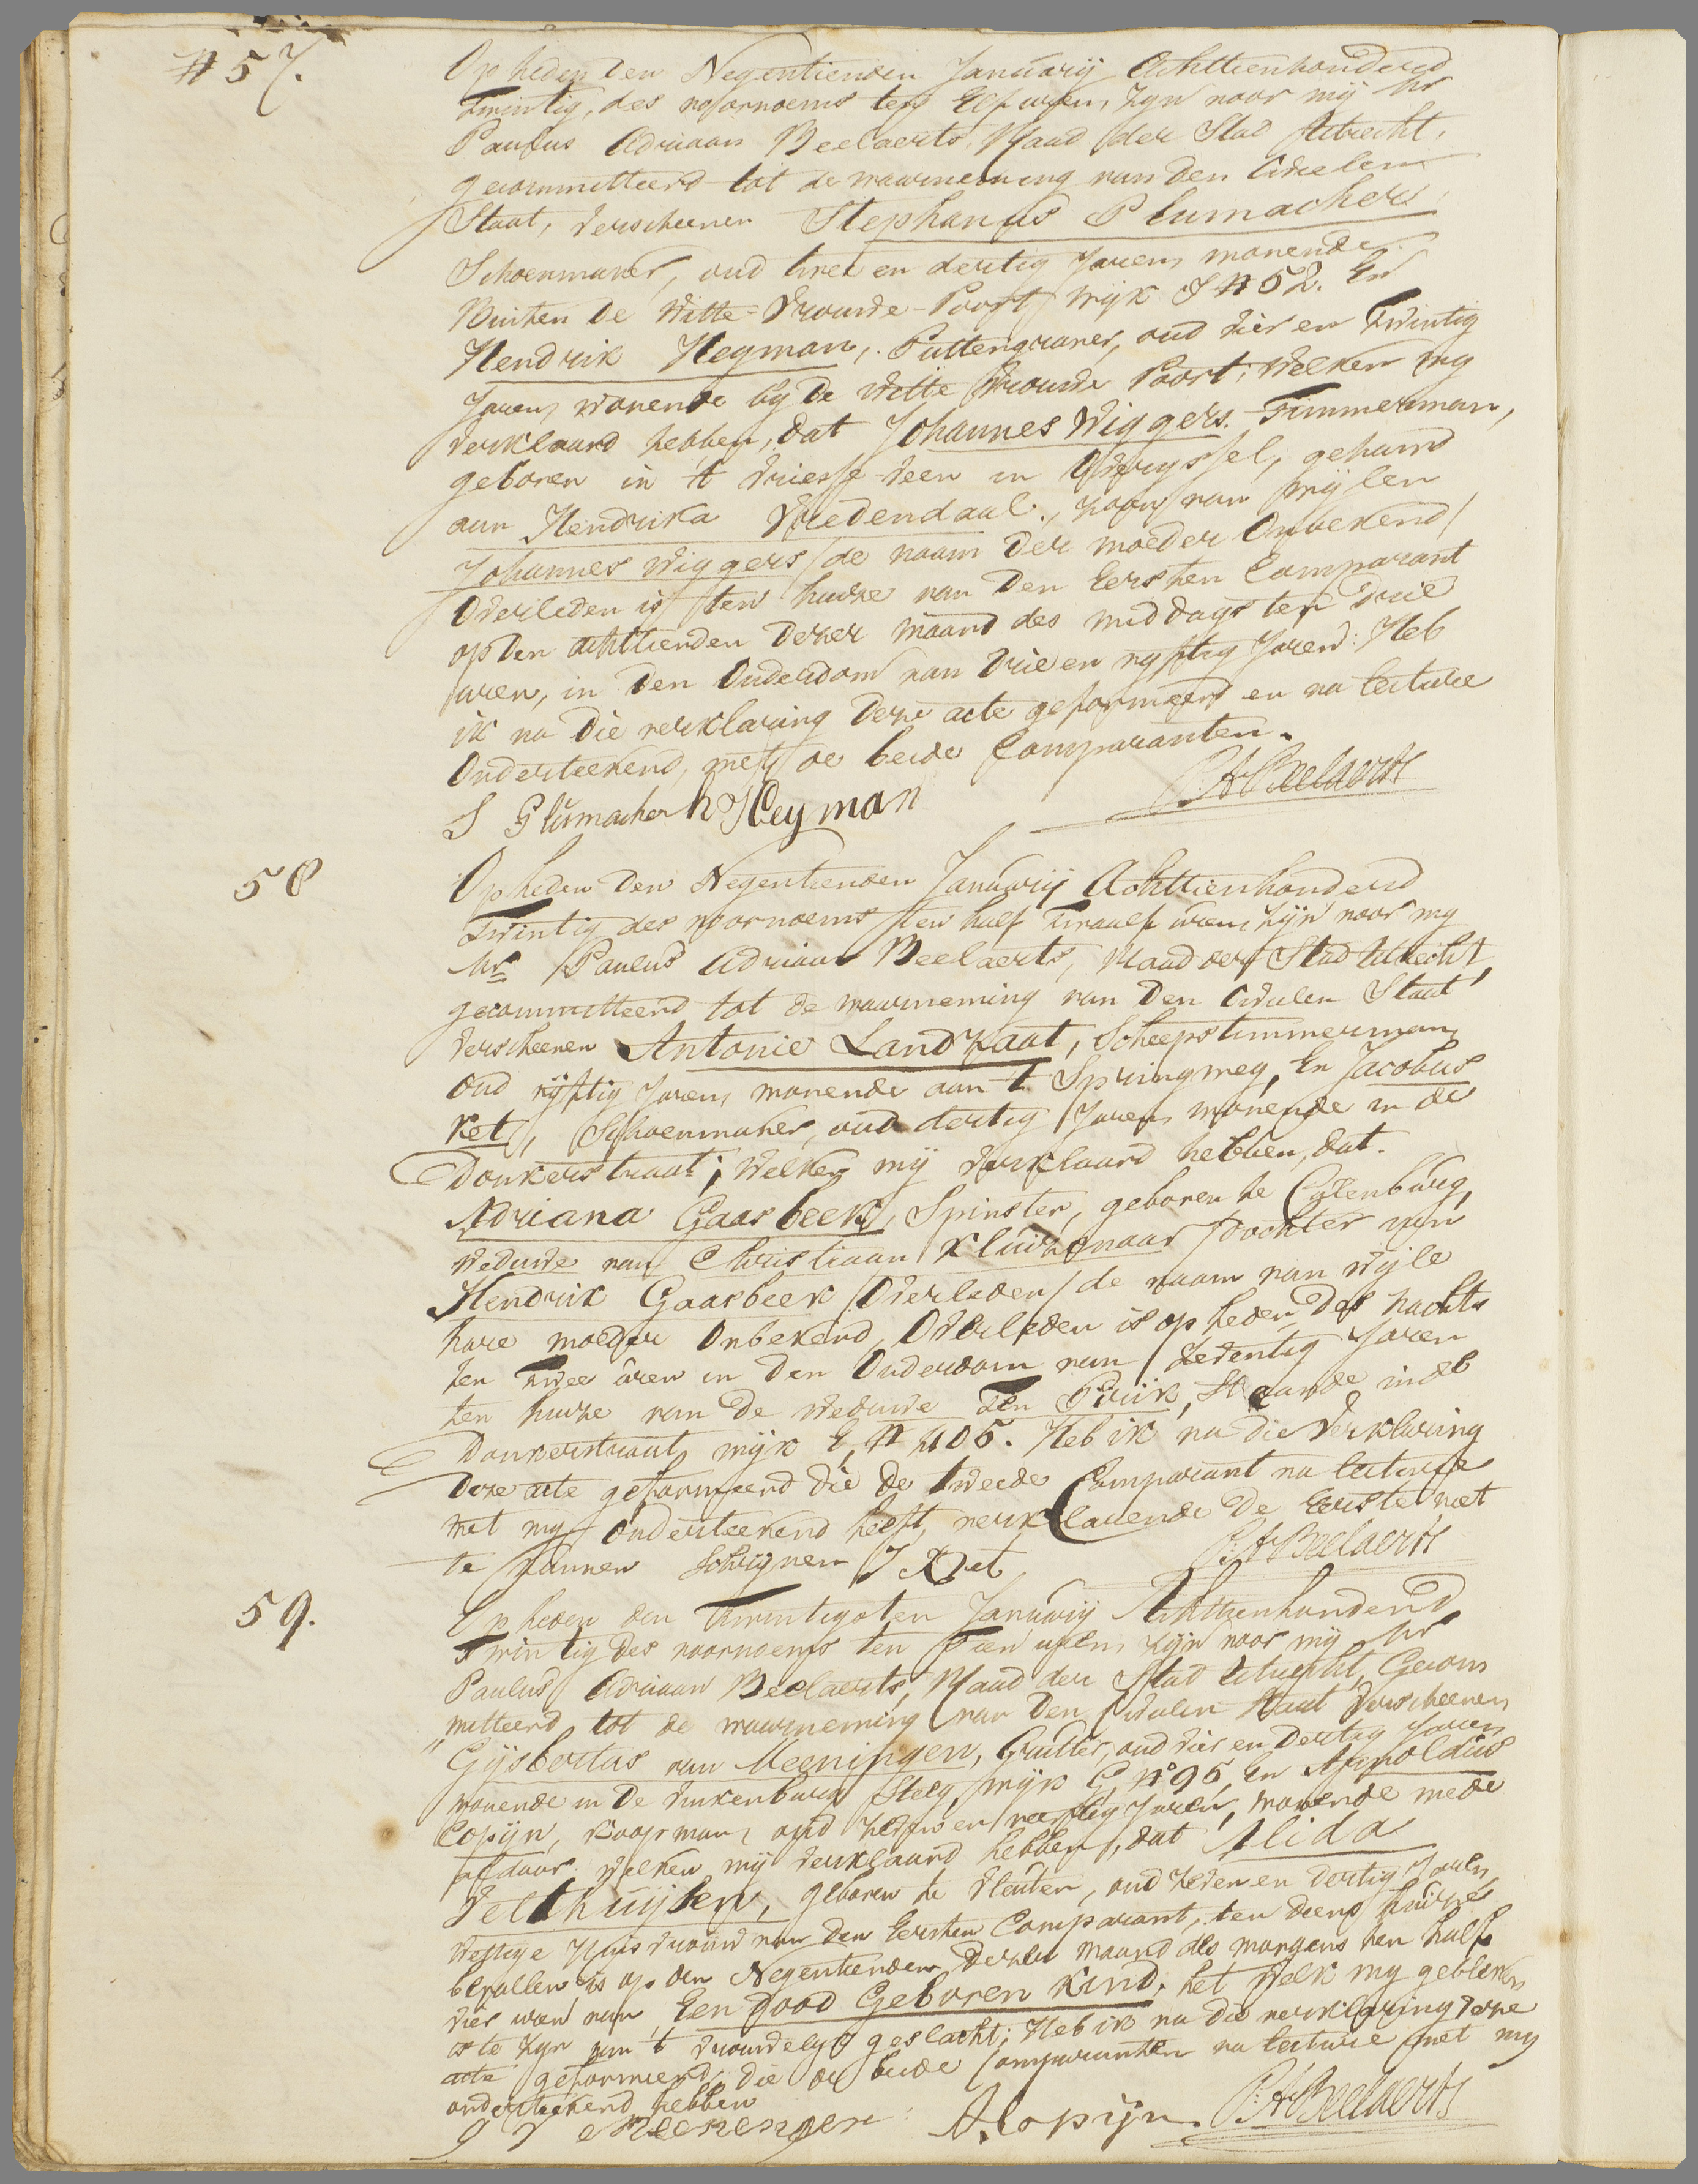 # 57.
Op heden den Negentienden Januarij Achttienhonderd
Twintig, des voornoems ten Elf uren, zyn voor mij Mr
Paulus Adriaan Beelaerts, Raad der Stad Utrecht,
gecommitteerd tot de waarneming van den Civielen
Staat, verscheenen Stephanus Plumacher
Schoenmaker, oud twee en dertig Jaren wonende
Buiten de Witte-Vrouwe-Poort wijk I # 52. En
Hendrik Heyman, Puttengraver, oud vier en Twintig
Jaren, wonende by de Witte Vrouwe Poort; Welken my
verklaard hebben, dat Johannes Wiggers. Timmerman,
geboren in 't Vriesse-veen in Overyssel, gehuwd
aan Hendrika Vredendaal., zoon van wylen
Johannes Wiggers /de naam der moeder Onbekend/
Overleden is ten huize van den Eersten Comparant
op den achttienden dezer maand des middags ten drie
uren, in den Ouderdom van drie en vyftig Jaren: Heb
ik na die verklaring deze acte geformeerd en na lecture
Onderteekend, met de beide Comparanten.
S Plumacher h Heyman P: A: Beelaerts
58
Op heden den Negentienden Januarij Achttienhonderd
Twintig des voornoems ten half Twaalf uren, zijn voor my
Mr Paulus Adriaan Beelaerts, Raad der Stad Utrecht,
gecommitteerd tot de waarneming van den Civielen Staat
verscheenen Antonie Landzaat, Scheepstimmerman,
oud vijftig Jaren, wonende aan 't Springweg, En Jacobus
Ket, Schoenmaker, oud dertig Jaren, wonende in de
Donkerstraat; Welken mij verklaard hebben, dat.
Adriana Gaasbeek, Spinster, geboren te Cylenburg,
Weduwe van Christiaan Kluizenaar Dochter van
Hendrik Gaasbeek /Overleden/ de naam van wijle
hare moeder Onbekend, Overleden is op heden des Nachts
ten Twee uren in den Ouderdom van Zeventig Jaren
ten huize van de Weduwe Ten Pruik, Staande in de
Donkerstraat, wijk E, # 405. Heb ik na die Verklaring
deze acte geformeerd die de tweede Comparant na lecture
met my Onderteekend heeft, verklarende de Eerste niet
te kunnen Schrijven J Ket P: A: Beelaerts
59.
Op heden den Twintigsten Januarij Achttienhonderd
Twintig des voornoems ten Tien uren, zijn voor mij Mr
Paulus Adriaan Beelaerts, Raad der Stad Utrecht, Gecom
"mitteerd tot de waarneming van den Civielen Staat verscheenen
Gijsbertus van Meeningen, Grutter, oud vier en Dertig Jaren
wonende in de Vinkenburg Steeg, wijk G, N° 96, En Arnoldus
Copijn, Koopman, oud zeven en veertig Jaren, wonende mede
aldaar. Welken mij verklaard hebben, dat Alida
Velthuijsen, geboren te Vleuten, oud zeven en dertig Jaren,
Wettige Huisvrouw van den Eersten Comparant, ten diens huize
bevallen is op den Negentienden dezer maand des morgens ten half
vier uren van Een dood Geboren Kind, het welk my gebleken
is te zyn van 't vrouwelyk geslacht; Heb ik na die verklaring deze
acte geformeerd, die de beide Comparanten na lecture met my
onderteekend hebben
G V Meeningen A. Copijn. P: A: Beelaerts